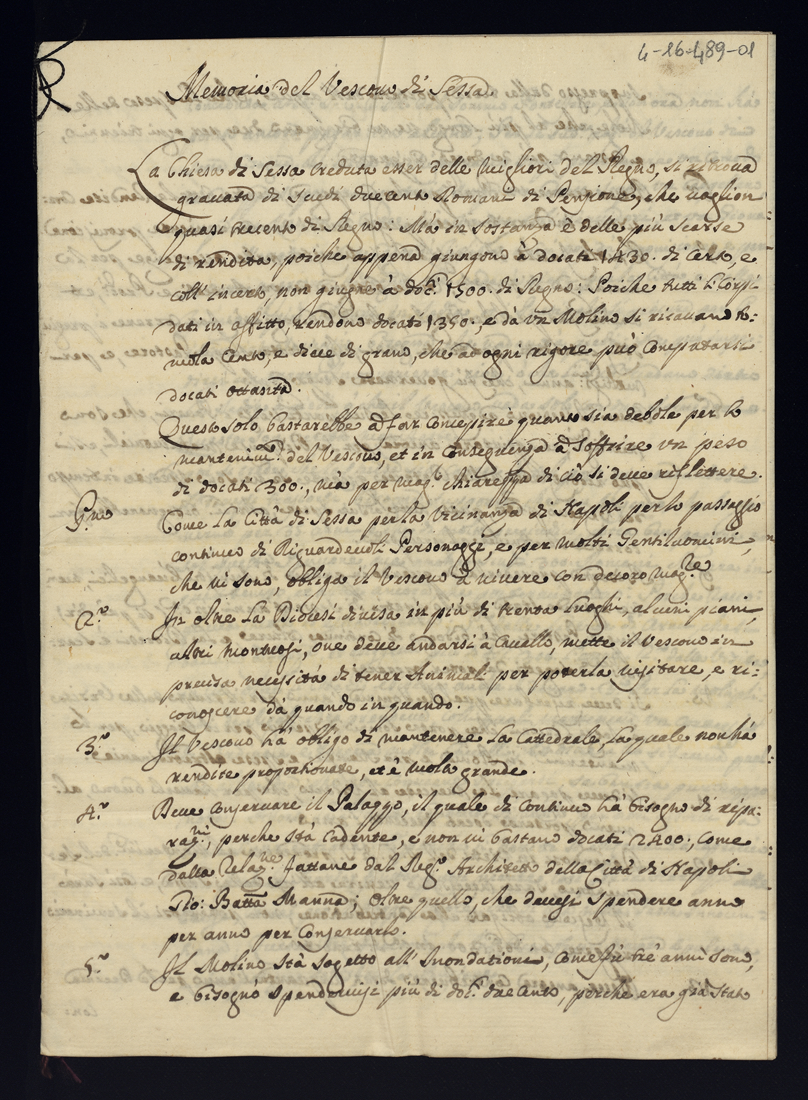 4-16-489-01
Memoria del Vescovo di Sessa
La Chiesa di Sessa creduta esser delle migliori del Regno, si ritrova
gravata di Scudi ducento Romani di Pensione, che vaglion
quasi trecento di Regno: Mà in sostanza è delle più scarse
di rendita, poiche appena giungono à docati 1430. di Certo, e
coll' incerto, non giugne à doc.ti 1500. di Regno: Poiche tutti li Corpi
dati in affitto, rendono docati 1350. e dà un Molino si ricavano to-
mola Cento, e diece di grano, che ad ogni rigore può Computarsi
docati ottanta.
Questo solo bastarebbe à far concepire quanto sia debole per lo
mantenim.to del Vescovo, et in conseguenza à soffrire un peso
di docati 300., mà per mag.r chiarezza di ciò si deve riflettere.
P.mo Come la Città di Sessa per la vicinanza di Napoli per lo passaggio
continuo di Riguardevoli Personaggi, e per molti Gentiluomini,
che vi sono, obliga il Vescovo à vivere con decoro mag.re
2.o In oltre la Diocesi divisa in più di trenta Luoghi, alcuni piani,
altri montuosi, ove deve andarsi à Cavallo, mette il Vescovo in
precisa necessità di tener Animali per poterla visitare, e ri-
conoscere dà quando in quando.
3.o Il Vescovo hà obligo di mantenere la Cattedrale, la quale non hà
rendite proportionate, et è molto grande.
4.o Deve conservare il Palazzo, il quale di continuo hà bisogno di ripa-
raz.ni, perche stà cadente, e non vi bastano docati 2400., come
dalla Relaz.ne fattane dal Reg.o Architetto della Città di Napoli
Gio: Batta Manna; oltre quello, che devesi spendere anno
per anno per conservarlo.
5.o Il Molino stà sogetto all' Inondationi, come fù trè anni sono,
e bisognò spendervisi più di doc.ti duecento, perche era già stato